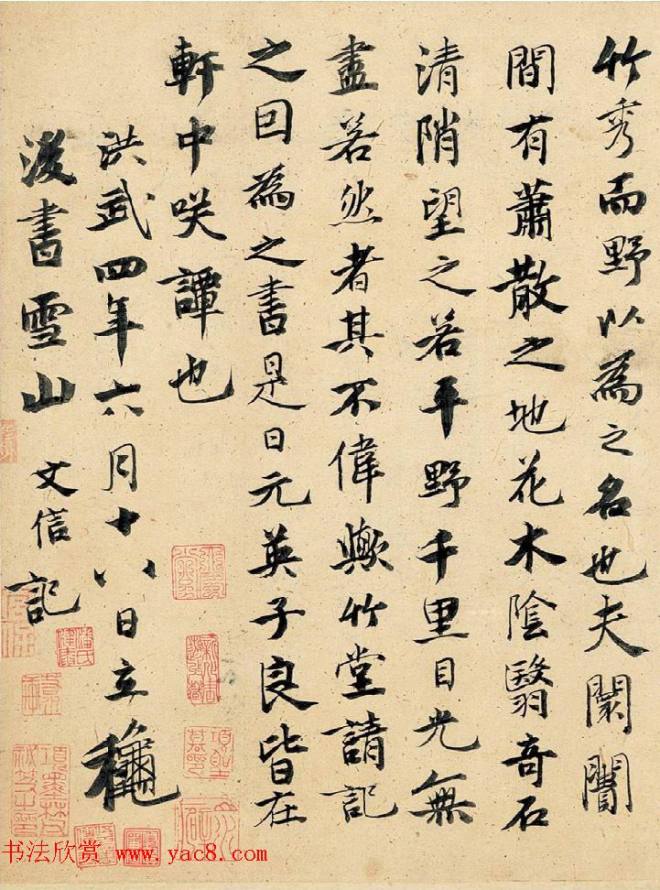 竹秀而野以為之名也夫闤闠
間有蕭散之地花木陰翳奇石
清陗望之若平野千里目光無
盡若然者其不偉歟竹堂請記
之回為之書是日元英子良皆在
軒中咲譚也
洪武四年六月十八日立穐
後書雪山文信記
书法欣赏 www.yac8.com